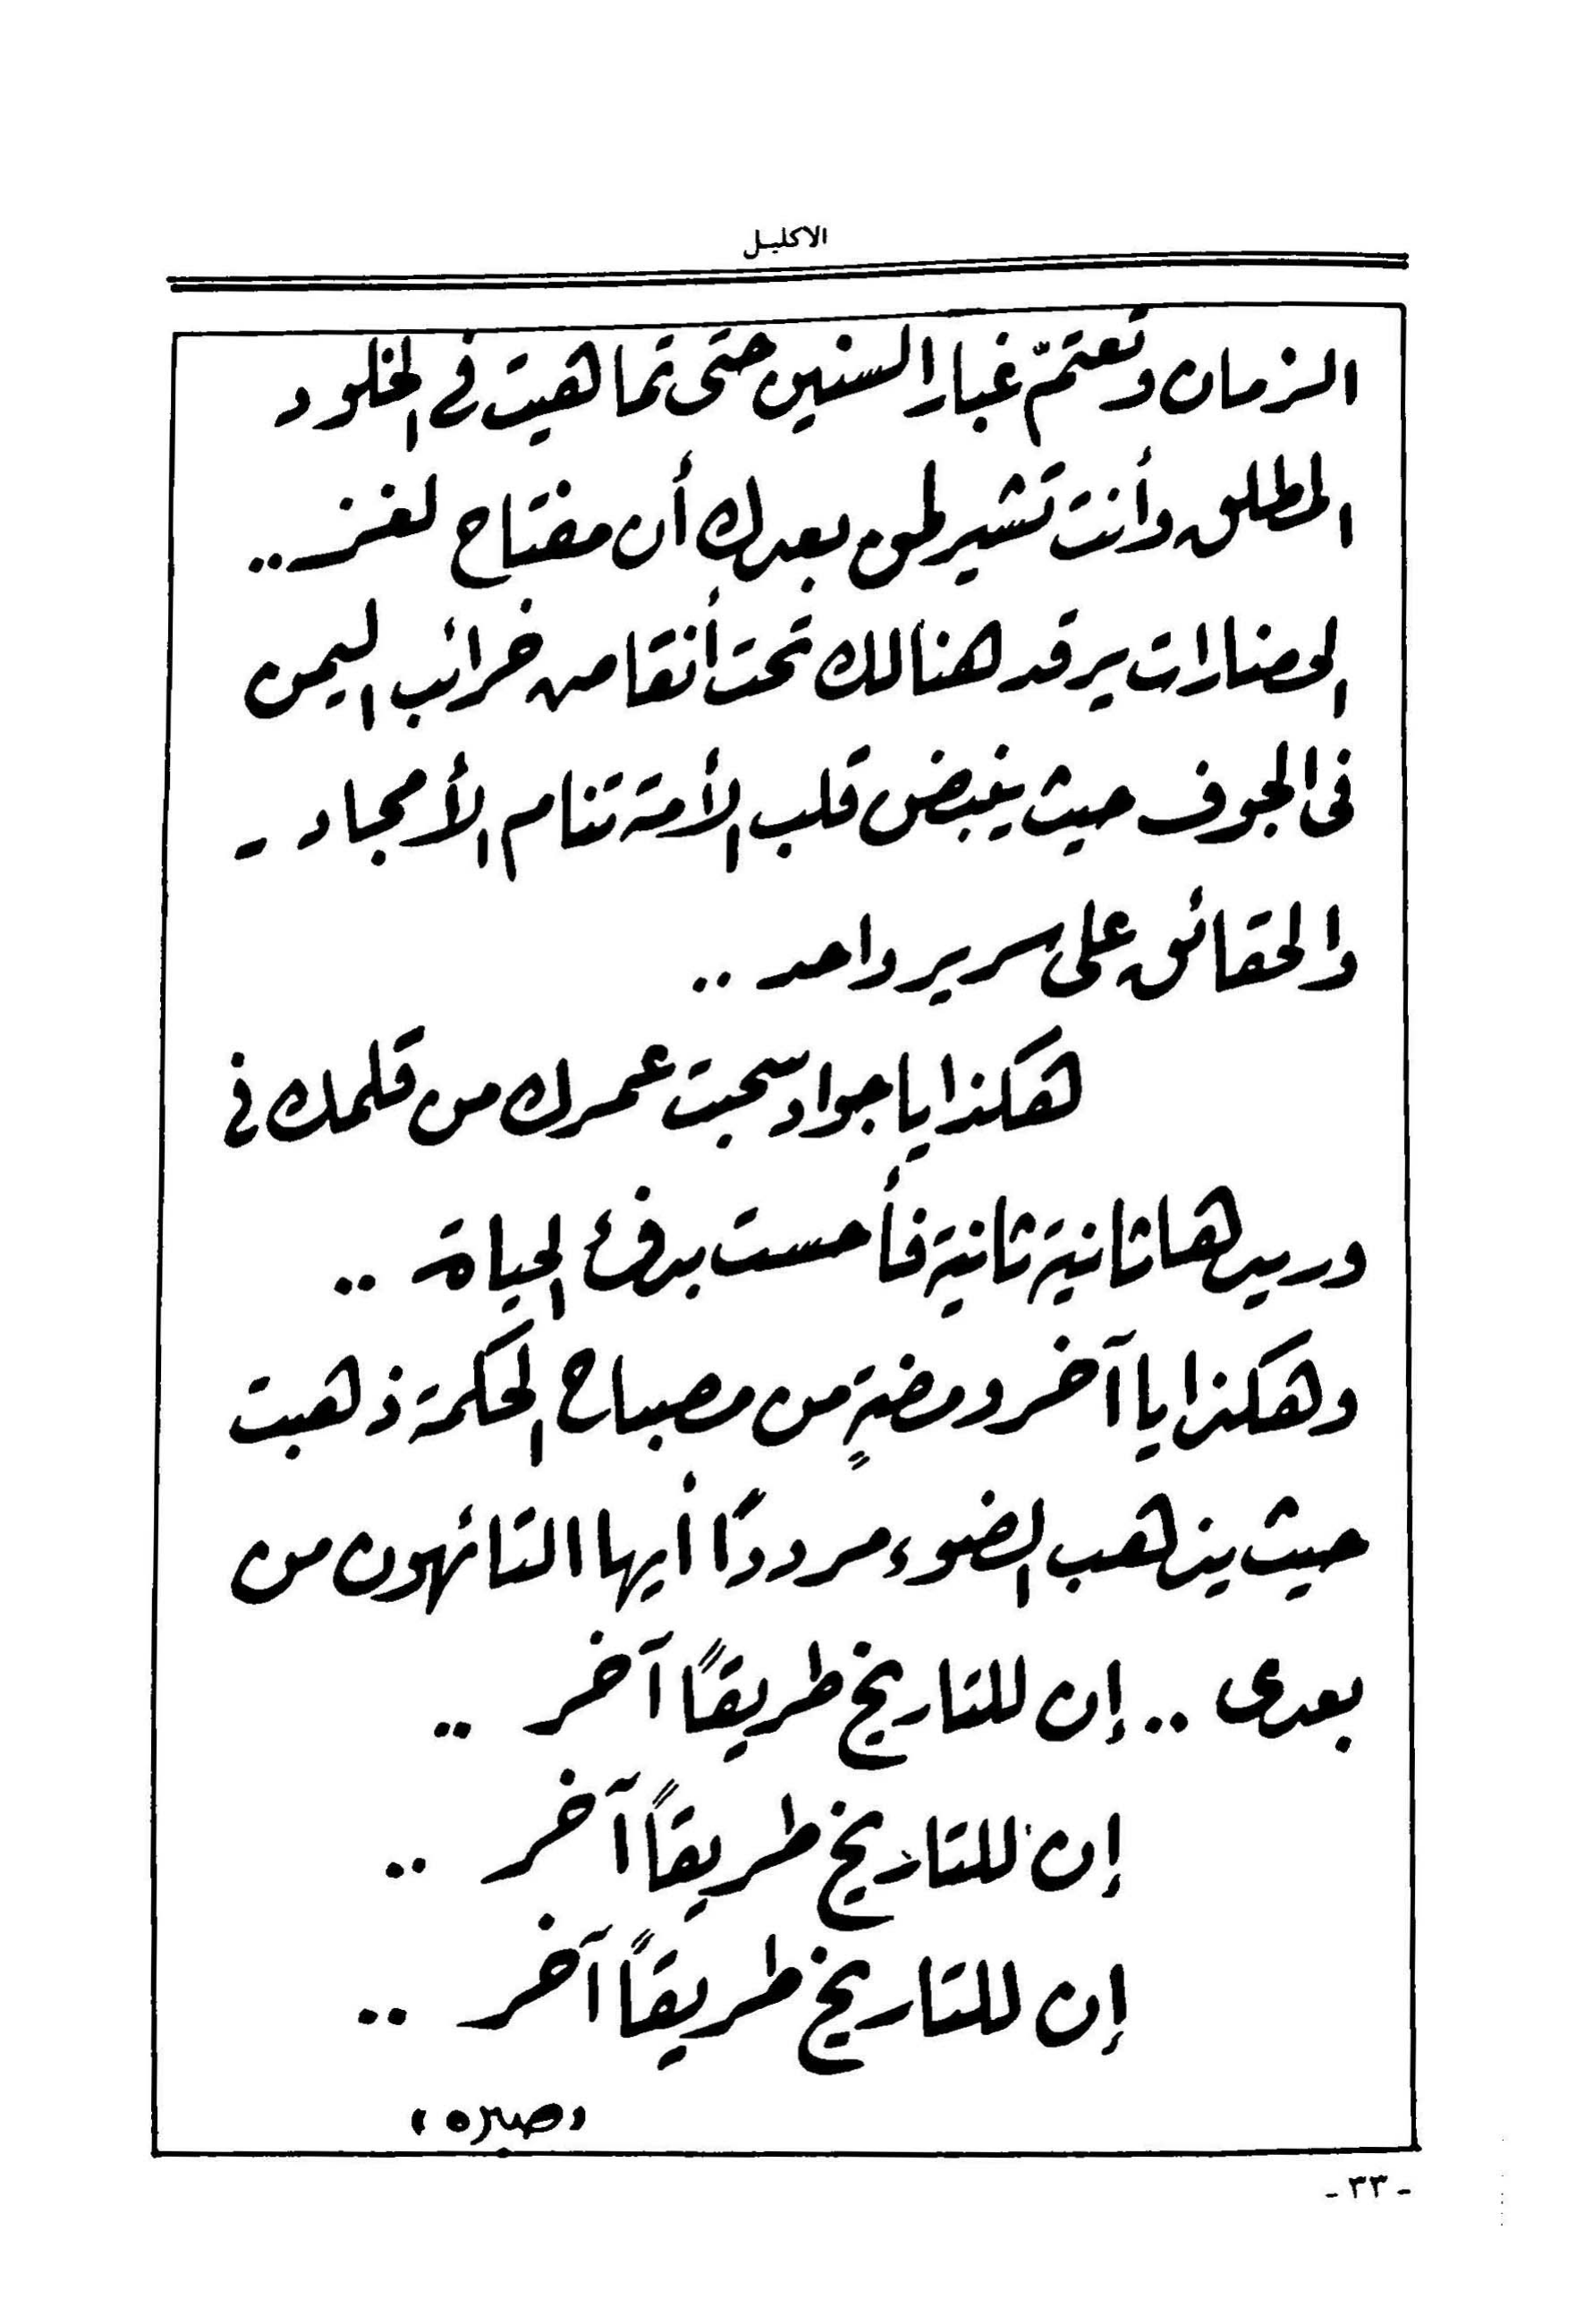 الاكليل
الزمان وتعتمّ غبار السنين حتى تماهيت في الخلود
المطلق وأنت تشير لمن بعدك أن مفتاح لغز ..
الحضارات يرقد هنالك تحت أنقاض خرائب اليمن
في الجوف حيث ينبض قلب الأمة تنام الأمجاد -
والحقائق على سرير واحد ..
هكذا يا جواد سحبت عمرك من قلمك في
وريدها ثانية ثانية فأحست بدفء الحياة ..
وهكذا يا آخر ومضةٍ من مصباح الحكمة ذهبت
حيث يذهب الضوء مردداً أيها التائهون من
بعدي .. إن للتاريخ طريقاً آخر ..
إن للتاريخ طريقاً آخر ..
إن للتاريخ طريقاً آخر ..
«صبره»
- ٣٣ -